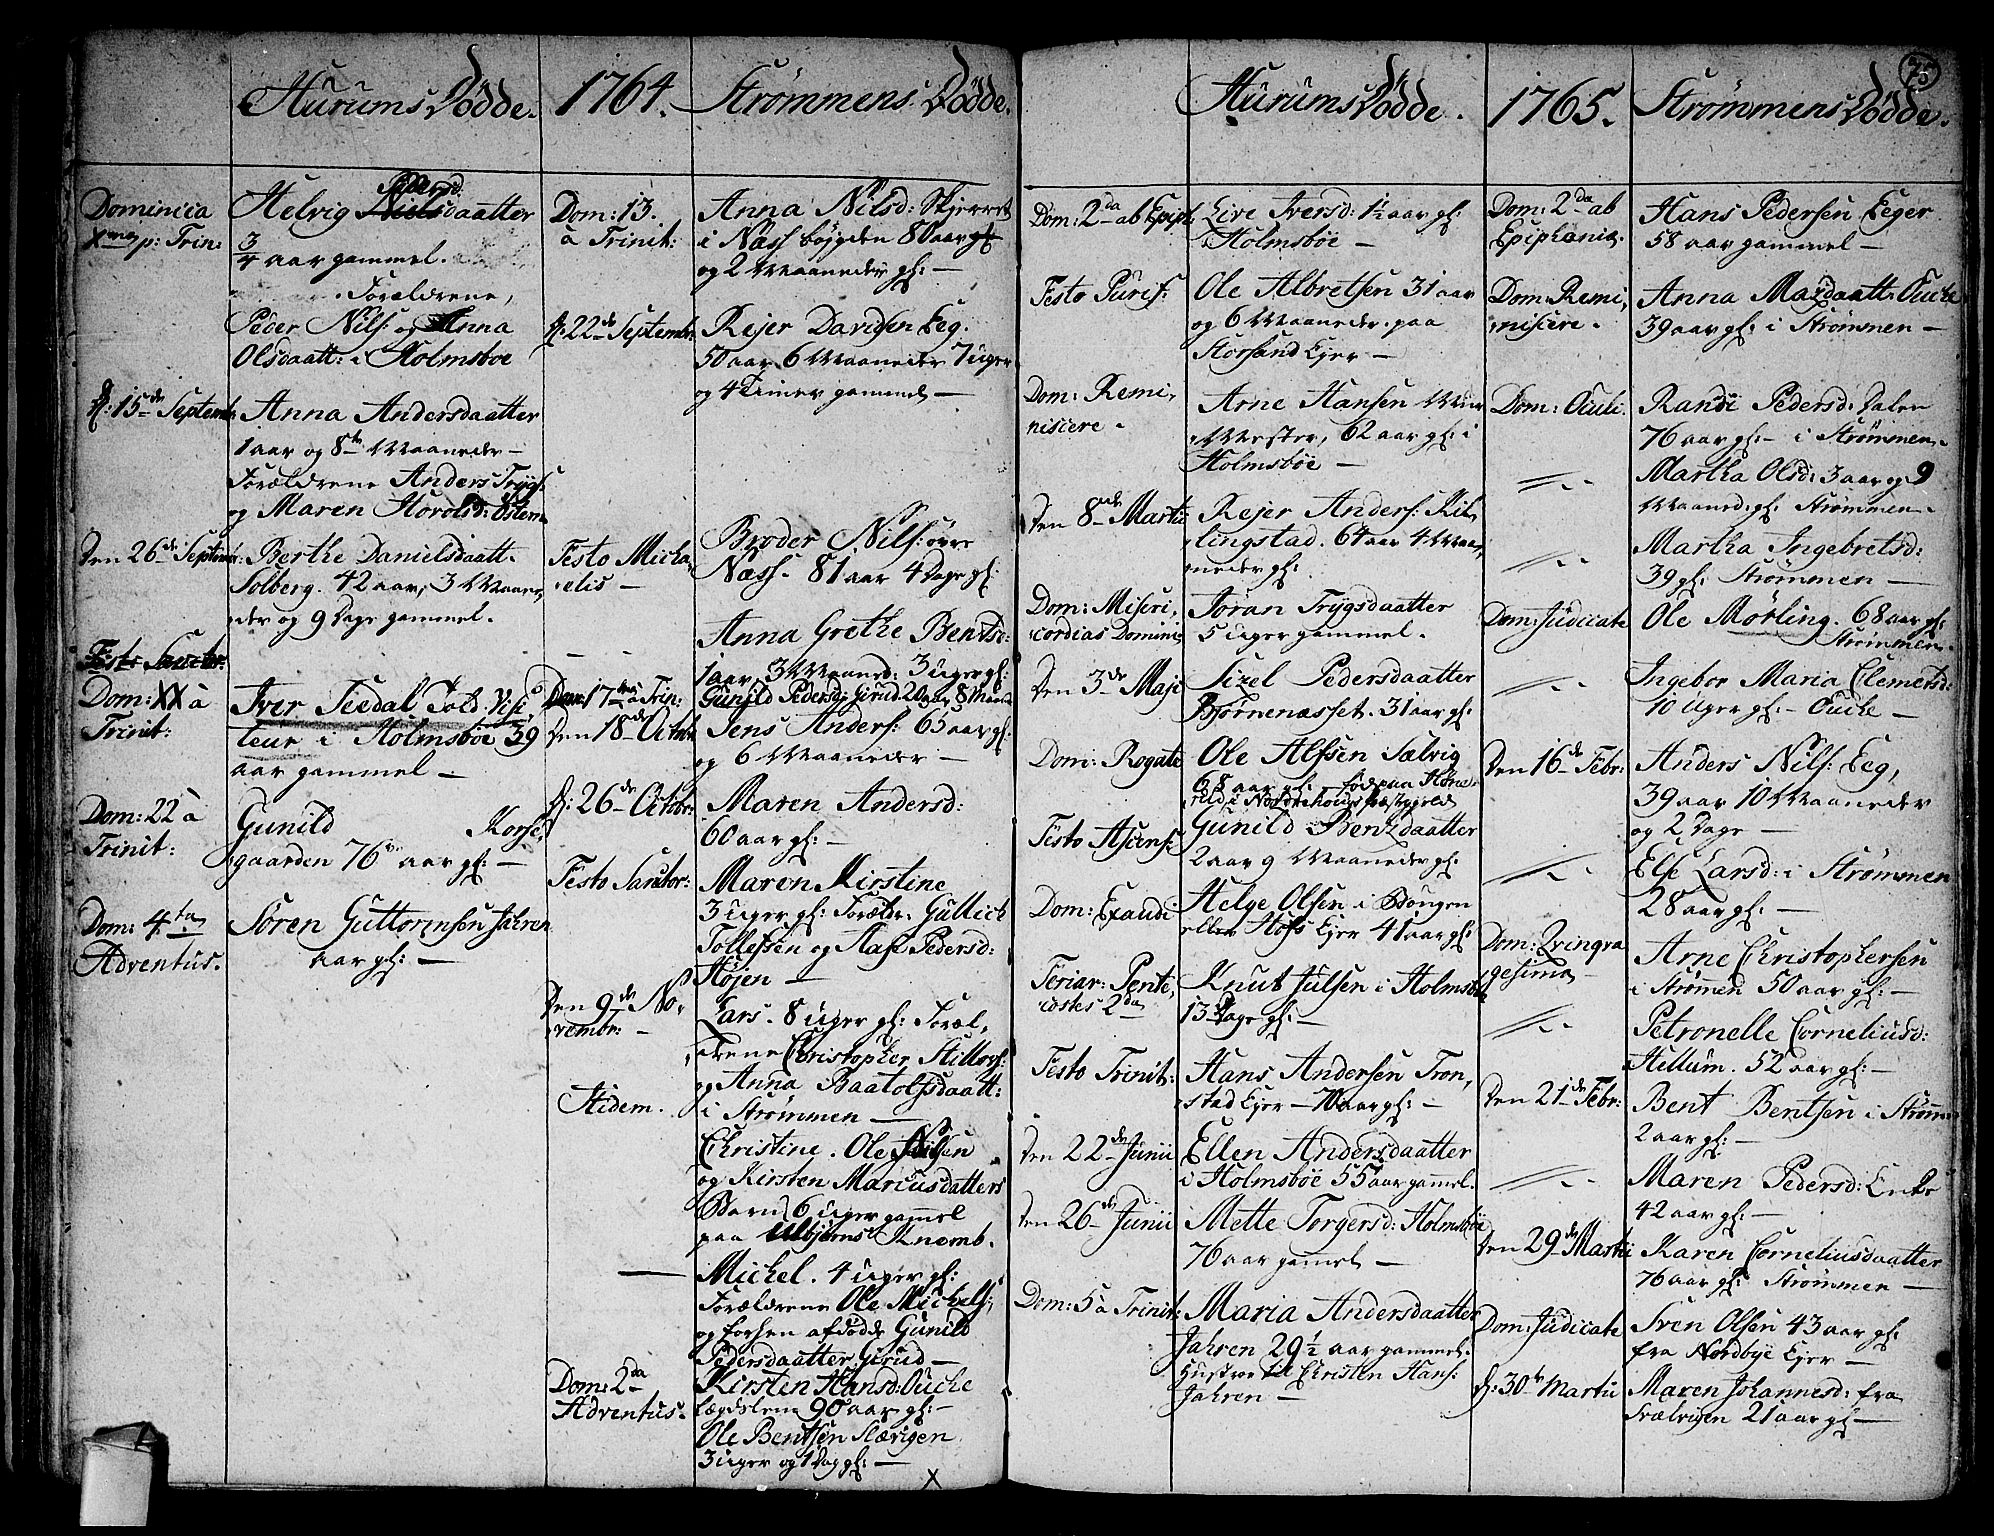 Hurums Dødde.
Dominica
Xma p: Trin:
Pedersd
Helvig Nielsdaatter
3/4 aar gammel.
Forældrene,
Peder Nils: og Anna
Olsdaatt: i Holmsboe
d: 15de Septemb:
Anna Andersdaatter
1 aar og 8te Maaneder –
Forældrene Anders Trygs:
og Maren Harolsd: Østen
Den 26de Septemb:
Berthe Danielsdaatt.
Solberg. 42 aar, 3 Maane,
der og 9 Dage gammel.
Festo Sanctor:
Dom: XX à
Trinit:
Iver Teedal Told Visi
teur i Holmsboe 39
aar gammel –
Dom: 22 à
Trinit:
Gunild Korse
gaarden 76 aar gl: –
Dom: 4ta
Adventus.
Søren Guttormsen Jahren
aar gl: –
1764. Strømmens Dødde.
Dom: 13.
à Trinit:
Anna Nilsd: Skjerret
i Næss bøgden 80 aar gl
og 2 Maaneder gl: –
d: 22de Septembr:
Rejer Davidsen Eeg.
50 aar 6 Maaneder 7 uger
og 4 Timer gammel –
Festo Micha,
elis –
Broder Nils: øvre
Næss. 81 aar 4 Dage gl:
Anna Grethe Bentsd:
1 aar, 3 Maaned: 3 uger gl:
Dom: 17 à Trin:
Gunild Pedersd: Girud 2 Dage 8 Maaned
Den 18de Octobr
Jens Anders: 65 aar gl:
og 6 Maaneder –
d: 26de Octobr:
Maren Andersd:
60 aar gl: –
Festo Sanctor:
Maren Kirstine
3 uger gl: Forældr: Gullich
Tollefsen og Aase Pedersd:
Højen –
Den 9de No,
vembr: –
Lars. 8 uger gl: Foræl,
drene Christopher
og Anna Baatolfsdaatt:
i Strømmen –
Ibidem.
Christine. Ole Nilsen
og Kirsten Marcusdatters
Barn 6 uger gammel
paa Knæmb.
Michel. 4 uger gl:
Forældrene Ole Michels:
og forhen afdødde Gunild
Pedersdaatter Girud –
Dom: 2da
Adventus.
Kirsten Hansd: Ouche
lægdslem 90 aar gl: –
Ole Bentsen Slærigen
3 uger og 1 Dag gl: –
X
75
Hurums Dødde.
Dom: 2da ab Epiph.
Live Iversd: 1½ aar gl:
Holmsbøe –
Festo Purif:
Ole Albretsen 31 aar
og 6 Maaneder. paa
Storsand Ejer –
Dom: Remi,
niscere –
Arne Hansen Mur
Mester, 62 aar gl: i
Holmsbøe –
Den 8de Martii
Rejer Anders: Kil,
lingstad. 64 aar 4 Maa,
neder gl:
Dom: Miseri,
cordias Domini
Joran Trygsdaatter
5 uger gammel.
Den 3de Maji
Sizel Pedersdaatter
Bjørnenæsset. 31 aar gl:
Dom: Rogate
Ole Alfsen Sælvig
68 aar gl: fød paa Høne
rud i Norderhougs Præstegield
Festo Ascens:
Gunild Bentzdaatter
2 aar 9 Maaneder gl:
Dom: Exaudi
Helge Olsen i Bøngen
eller Hofs Ejer 41 aar gl:
Feriar: Pente,
costes 2da
Knut Julsen i Holmsb
13 Dage gl: –
Festo Trinit:
Hans Andersen Tron,
stad Ejer – 70 aar gl: –
Den 22de Junii
Ellen Andersdaatter
i Holmsbøe 55 aar gammel.
Den 26de Junii
Mette Torgersd: Holmsbøe
76 aar gammel –
Dom: 5 à Trinit:
Maria Andersdaatter
Jahren 29½ aar gammel.
Hustroe til Christen Hans:
Jahren –
1765. Strømmens Dødde.
Dom: 2da ab
Epiphania.
Hans Pedersen Eeger
58 aar gammel –
Dom: Remi,
niscere.
Anna Mazdaatt. Oucke
39 aar gl: i Strømmen –
Dom: Oculi.
Randi Pedersd: Dalen
76 aar gl: – i Strømmen –
Martha Olsd: 3 aar og 9
Maaned: gl: Strømmen –
Martha Ingebretsd:
39 gl: Strømmen –
Dom: Judicate
Ole Mørling. 68 aar gl:
Strømmen –
Ingebor Maria Clemetsd:
10 Uger gl: – Oucke –
Den 16de Febr:
Anders Nils: Eeg,
39 aar 10 Maaneder
og 2 Dage –
Else Larsd: i Strømmen
28 aar gl: –
Dom: Qvinqva
gesima
Arne Christophersen
i Strømen 50 aar gl: –
Petronelle Corneliusd:
Hellum. 52 aar gl: –
Den 21de Febr:
Bent Bentsen i Strømm
2 aar gl: –
Maren Pedersd: Enke
42 aar gl: –
Den 29de Martii
Karen Corneliusdaatter
76 aar gl: Strømmen –
Dom: Judicate
Sven Olsen 43 aar gl:
fra Nordbye Ejer –
d: 30te Martii
Maren Johannesd: fra
Svælvigen 21 aar gl –